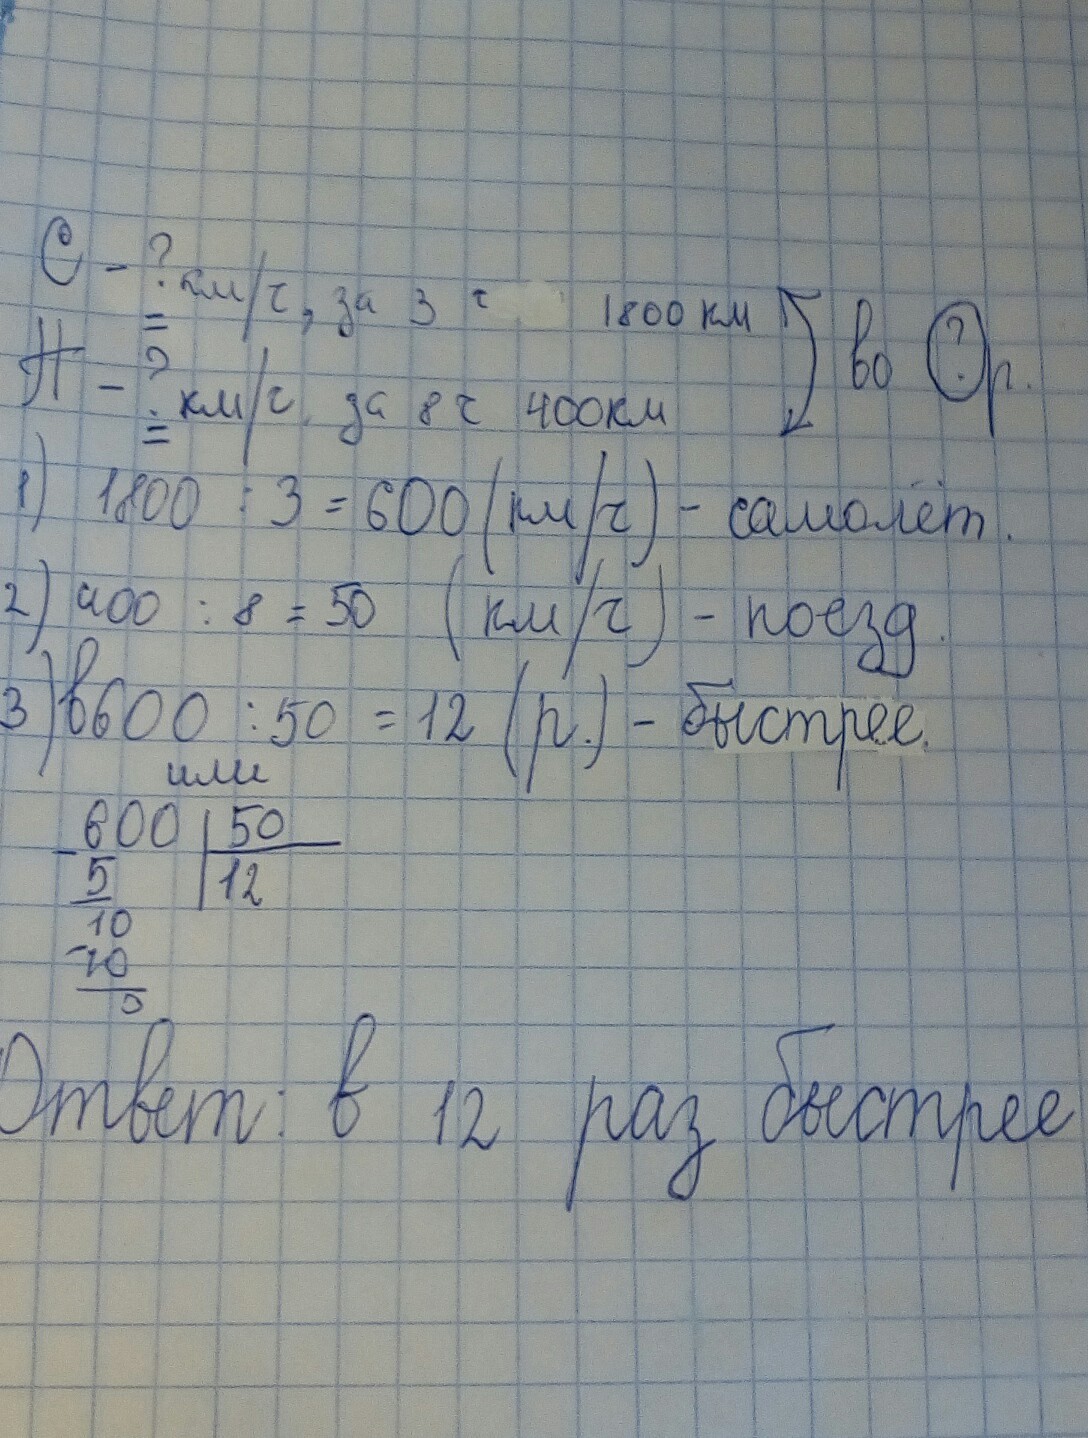 С - ? км/ч, за 3 ч 1800 км
П - ? км/ч, за 8 ч 400км
во ? р.
1) 1800 : 3 = 600 (км/ч) - самолёт.
2) 400 : 8 = 50 (км/ч) - поезд.
3) в600 : 50 = 12 (р.) - быстрее.
или
- 600 | 50
5 | 12
10
- 10
0
Ответ: в 12 раз быстрее